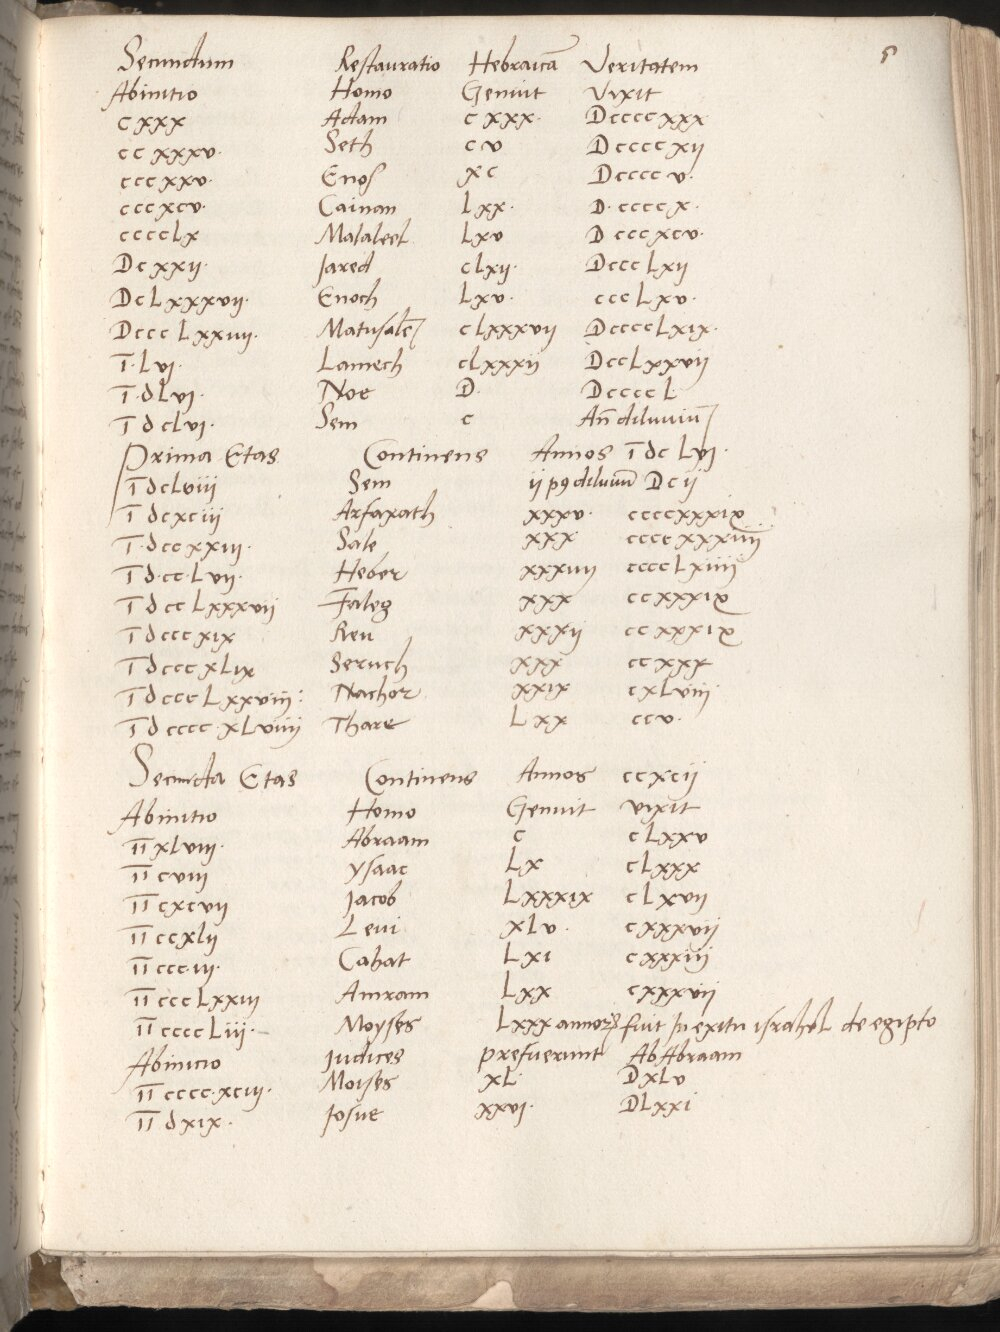 Secundum Restauratio Hebraicā Veritatem
Abinitio Homo Genuit Vixit
cxxx Adam cxxx· Dccccxxx
ccxxxv· Seth cv Dccccxij
cccxxv· Enos xc Dccccv·
cccxcv· Cainan Lxx· D·ccccx·
ccccLx Malaleel Lxv Dcccxcv·
Dcxxij· Jared cLxij· DcccLxij
DcLxxxvij· Enoch Lxv· cccLxv·
DcccLxxiiij· Matusalē cLxxxvij DccccLxix·
Ī·Lvj· Lamech cLxxxij DccLxxvij
Ī·dLvj· Noe D· DccccL
Ī dcLvj· Sem c An̄ diluuiū
Prima Etas Continens Annos Ī dc Lvj·
Ī dcLviij Sem ij p9 diluuiū Dcij
Ī dcxciij Arfaxath xxxv· ccccxxxix
Ī·dccxxiij· Sale xxx ccccxxxiiij
Ī d·cc·Lvij· Heber xxxiiij ccccLxiiij
Ī dccLxxxvij Faleg xxx ccxxxix
Ī dcccxix Reu xxxij ccxxxix
Ī dcccxLix Seruch xxx ccxxx
Ī dcccLxxviij: Nachor xxix cxLviij·
Ī dccccxLviiij Thare Lxx ccv·
Secunda Etas Continens Annos ccxcij
Abinitio Homo Genuit vixit
ĪĪxLviij· Abraam c cLxxv
ĪĪcviij Ysaac Lx cLxxx
ĪĪcxcvij Jacob Lxxxix cLxvij
ĪĪccxLij Leui xLv· cxxxvij
ĪĪccc·iij· Cahat Lxi cxxxiij
ĪĪcccLxxiij Amram Lxx cxxxvij
ĪĪccccLiij· Moyses Lxxx annorꝝ fuit In exitu israhel de egipto
Abinicio Iudices prefuerunt Ab Abraam
ĪĪcccc·xciij· Moises xL· DxLv
ĪĪdxix· Josue xxvj· DLxxi